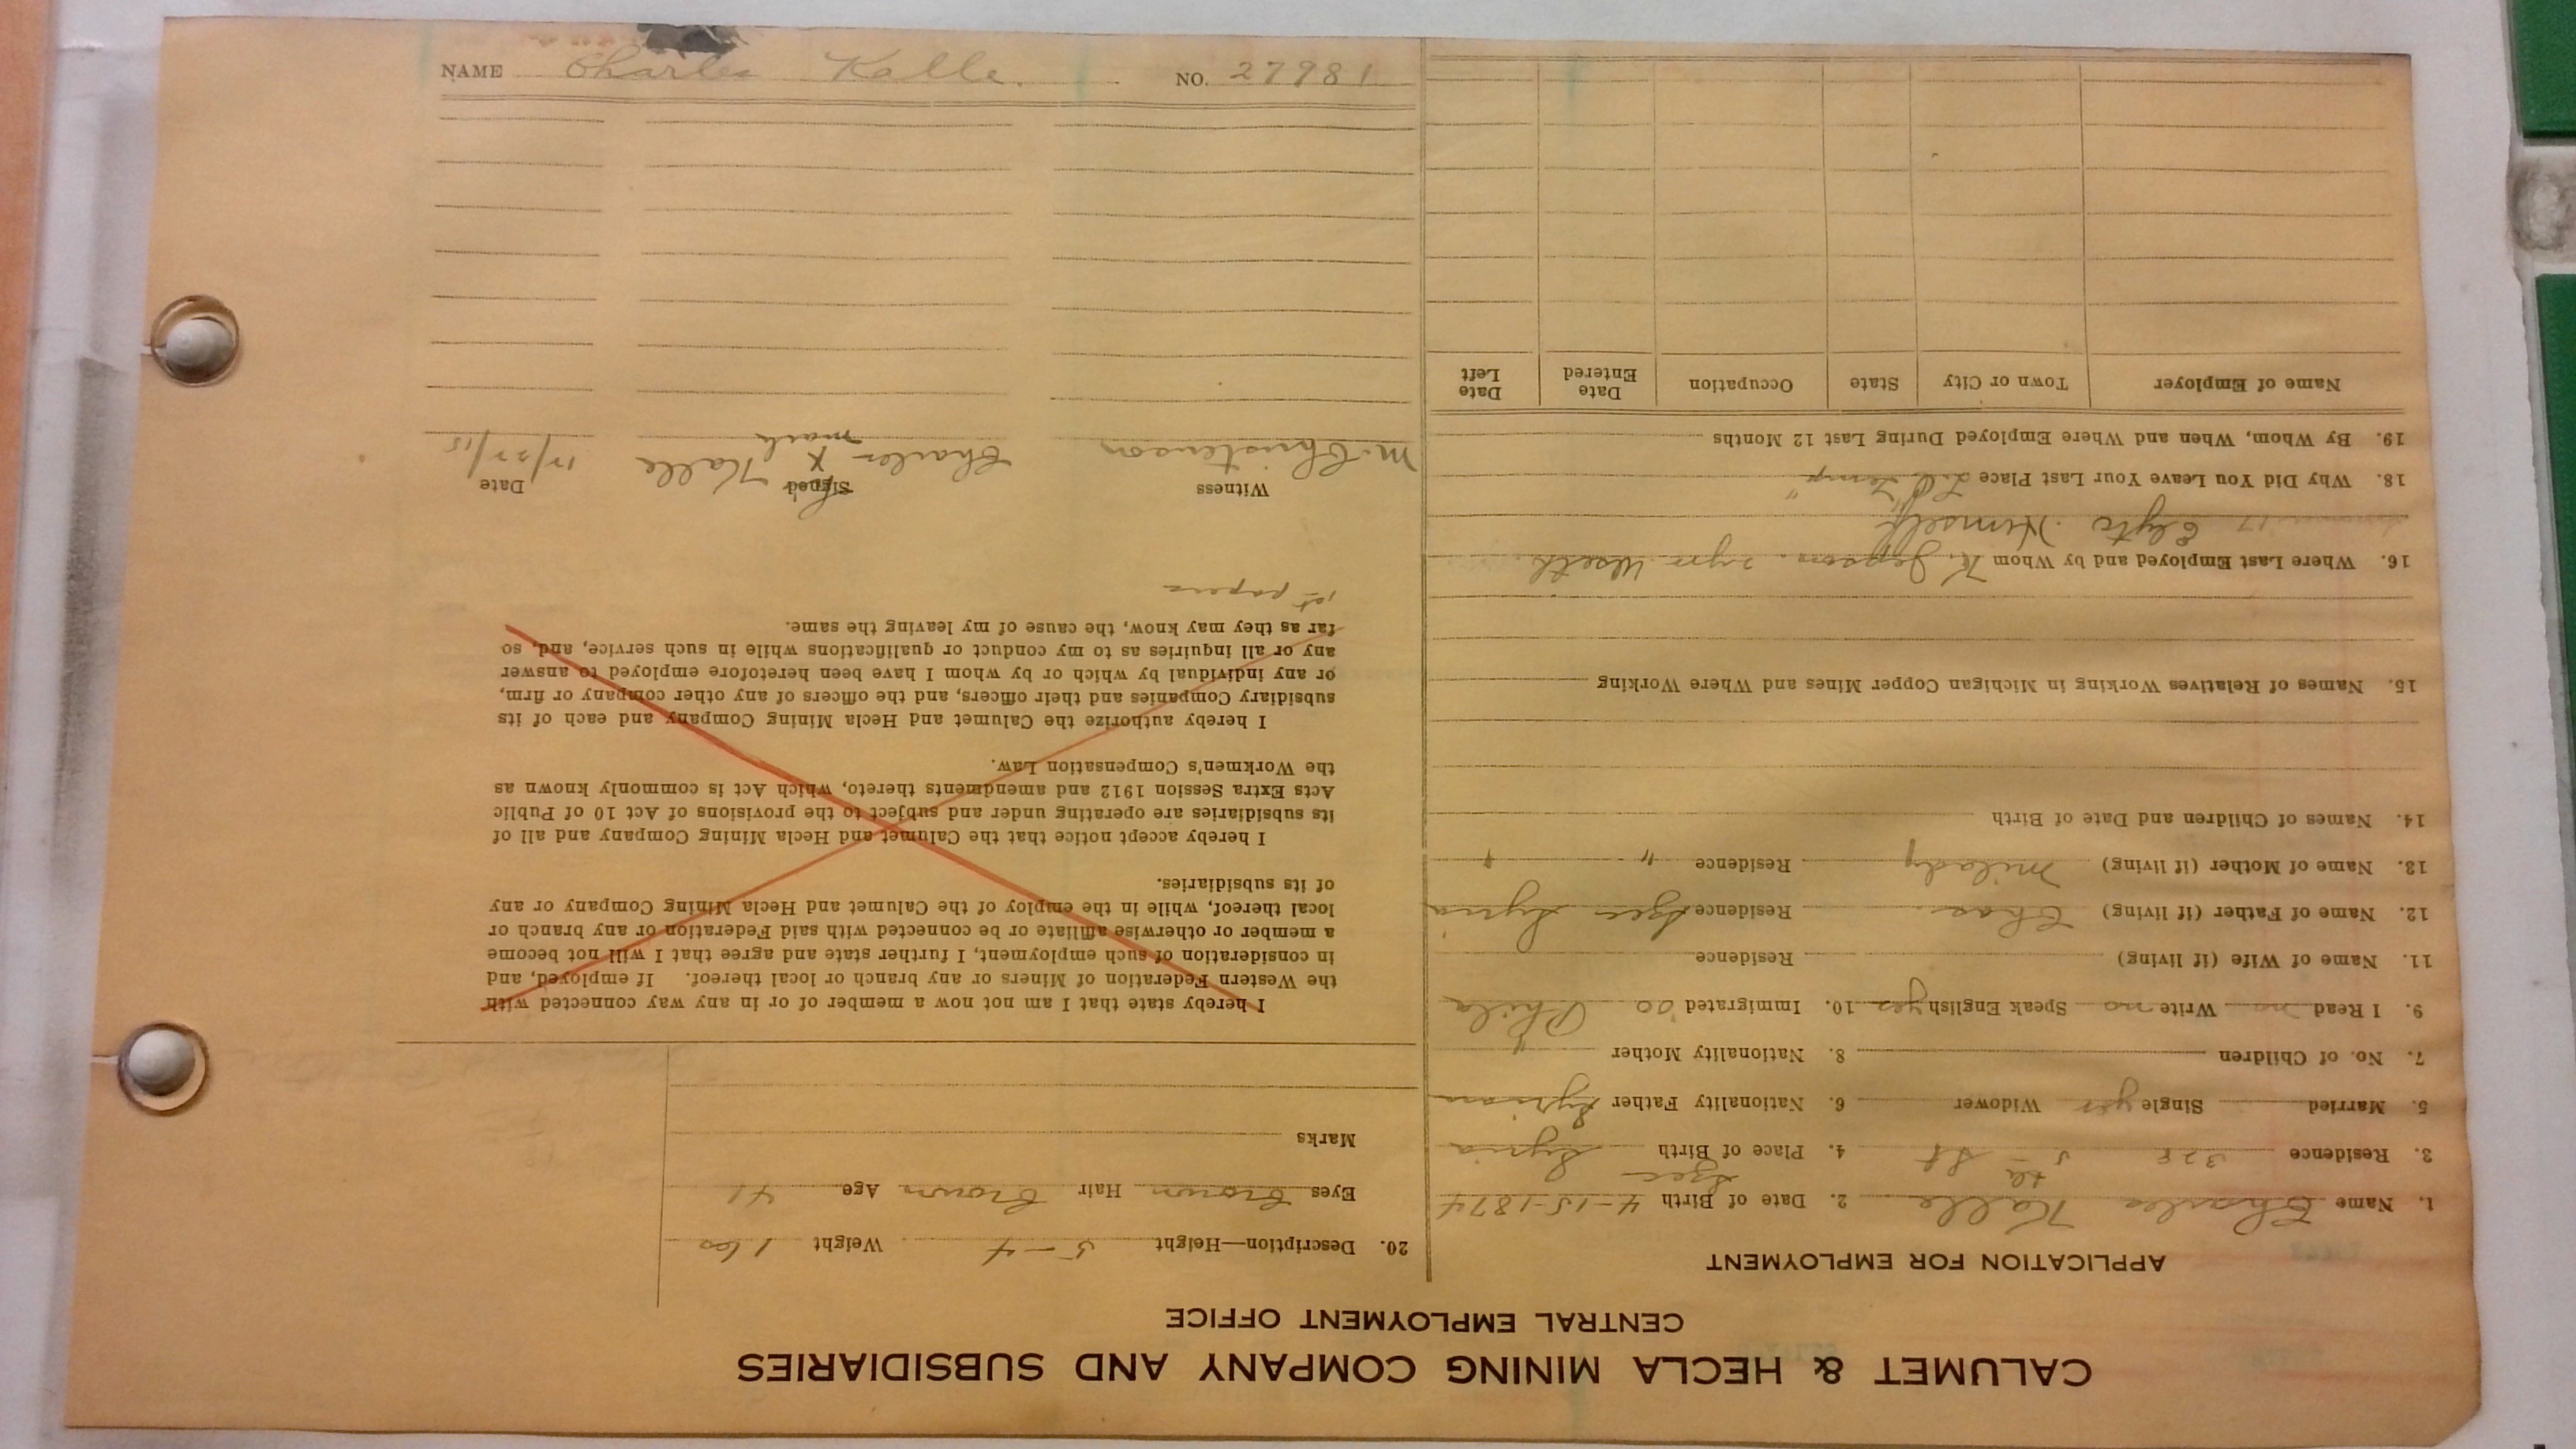 CALUMET & HECLA MINING COMPANY AND SUBSIDIARIES
CENTRAL EMPLOYMENT OFFICE
APPLICATION FOR EMPLOYMENT
1. Name Charles Kalle 2. Date of Birth 4-15-1874
3. Residence 328 5th St 4. Place of Birth Syria
5. Married Single yes Widower 6. Nationality Father Syrian
7. No. of Children 8. Nationality Mother "
9. I Read no Write no Speak English yes 10. Immigrated 00 Phila
11. Name of Wife (if living) Residence
12. Name of Father (if living) Chas. Residence Syria
13. Name of Mother (if living) Milady Residence " "
14. Names of Children and Date of Birth
15. Names of Relatives Working in Michigan Copper Mines and Where Working
16. Where Last Employed and by Whom
17 Himself
18. Why Did You Leave Your Last Place
19. By Whom, When and Where Employed During Last 12 Months
Name of Employer Town or City State Occupation Date Entered Date Left
20. Description—Height 5-4 Weight 160
Eyes Brown Hair Brown Age 41
Marks
I hereby state that I am not now a member of or in any way connected with
the Western Federation of Miners or any branch or local thereof. If employed, and
in consideration of such employment, I further state and agree that I will not become
a member or otherwise affiliate or be connected with said Federation or any branch or
local thereof, while in the employ of the Calumet and Hecla Mining Company or any
of its subsidiaries.
I hereby accept notice that the Calumet and Hecla Mining Company and all of
its subsidiaries are operating under and subject to the provisions of Act 10 of Public
Acts Extra Session 1912 and amendments thereto, which Act is commonly known as
the Workmen's Compensation Law.
I hereby authorize the Calumet and Hecla Mining Company and each of its
subsidiary Companies and their officers, and the officers of any other company or firm,
or any individual by which or by whom I have been heretofore employed to answer
any or all inquiries as to my conduct or qualifications while in such service, and, so
far as they may know, the cause of my leaving the same.
1st papers
Witness Signed Date
M. Christenson Charles X Kalle 12/27/15
mark
NAME Charles Kalle. NO. 27981